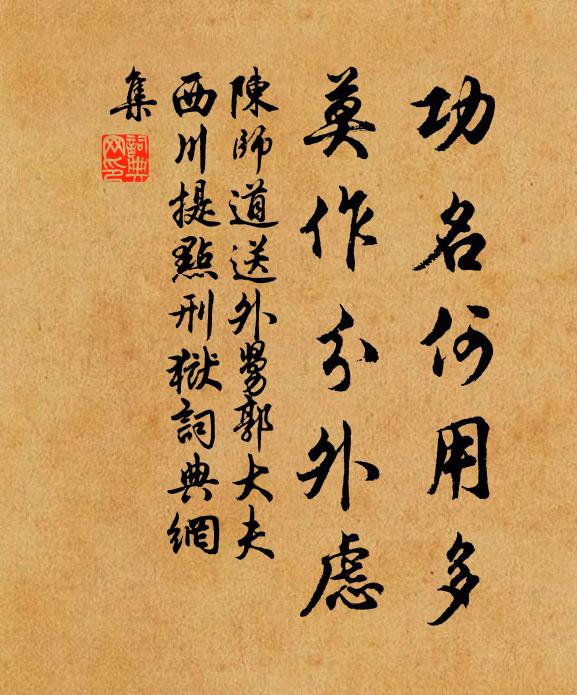 功名何用多
莫作分外慮
陳師道送外舅郭大夫
西川提點刑獄詞典網
集
詞典網印